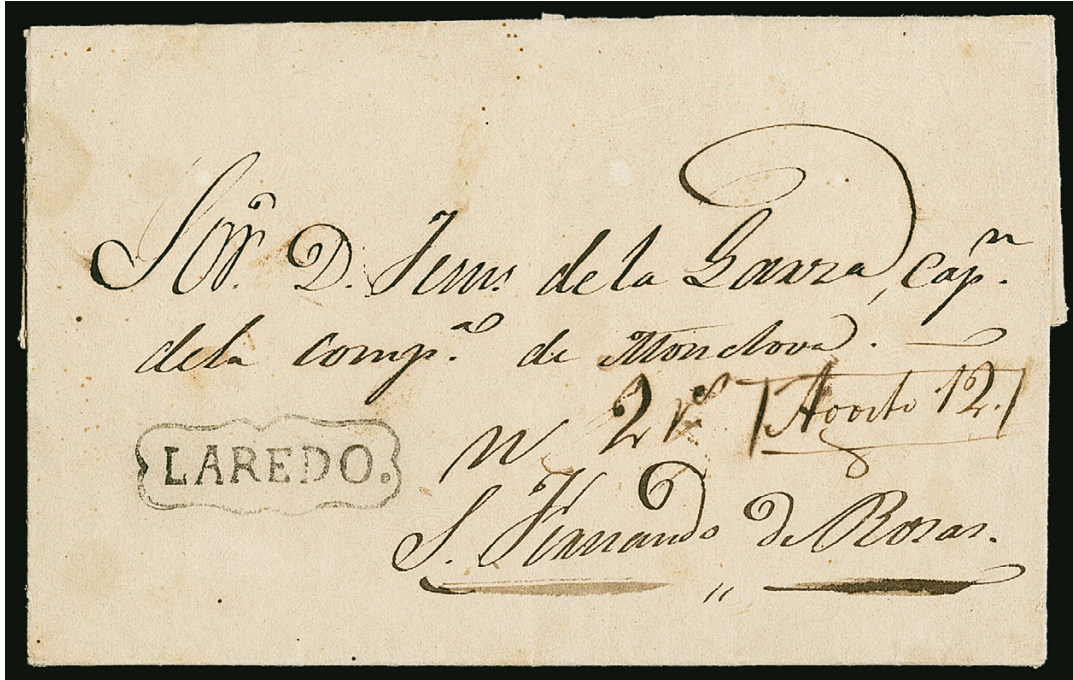 Sor. D. Jesus de la Garza, capn.
de la compa. de Monclova.
2 rs Agosto 12.
LAREDO.
S. Fernando de Rosas.